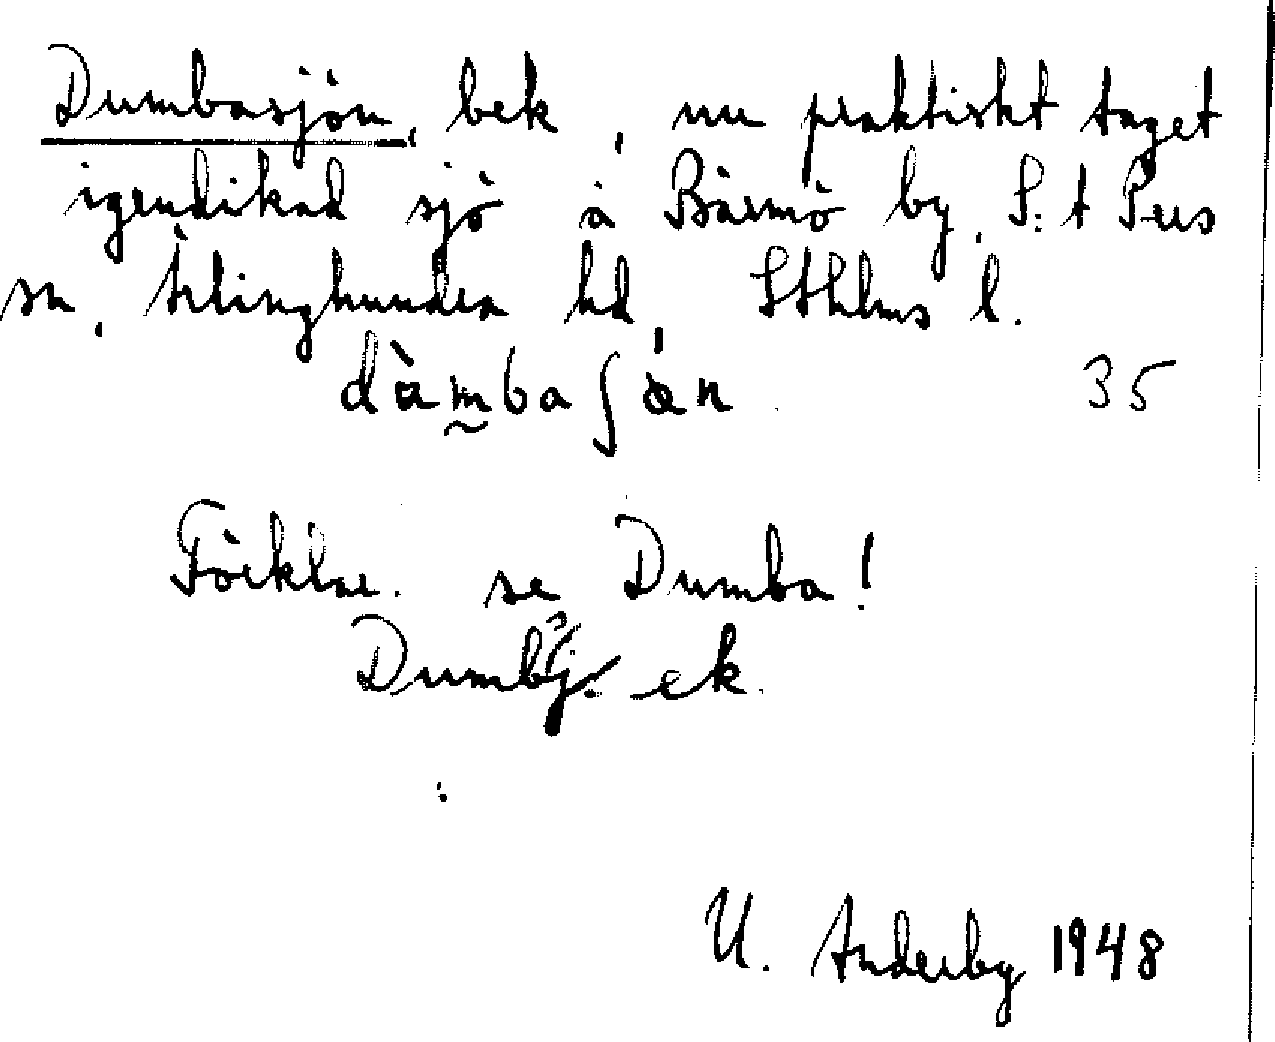 Dumbasjön, bek, nu praktiskt taget
igendikad sjö å Bärmö by, S:t Pers
sn, Ärlinghundra hd, Sthlms l.
dàmbaʃön 35
Förklar. se Dumba!
Dumbj. ek.
U. Anderby 1948